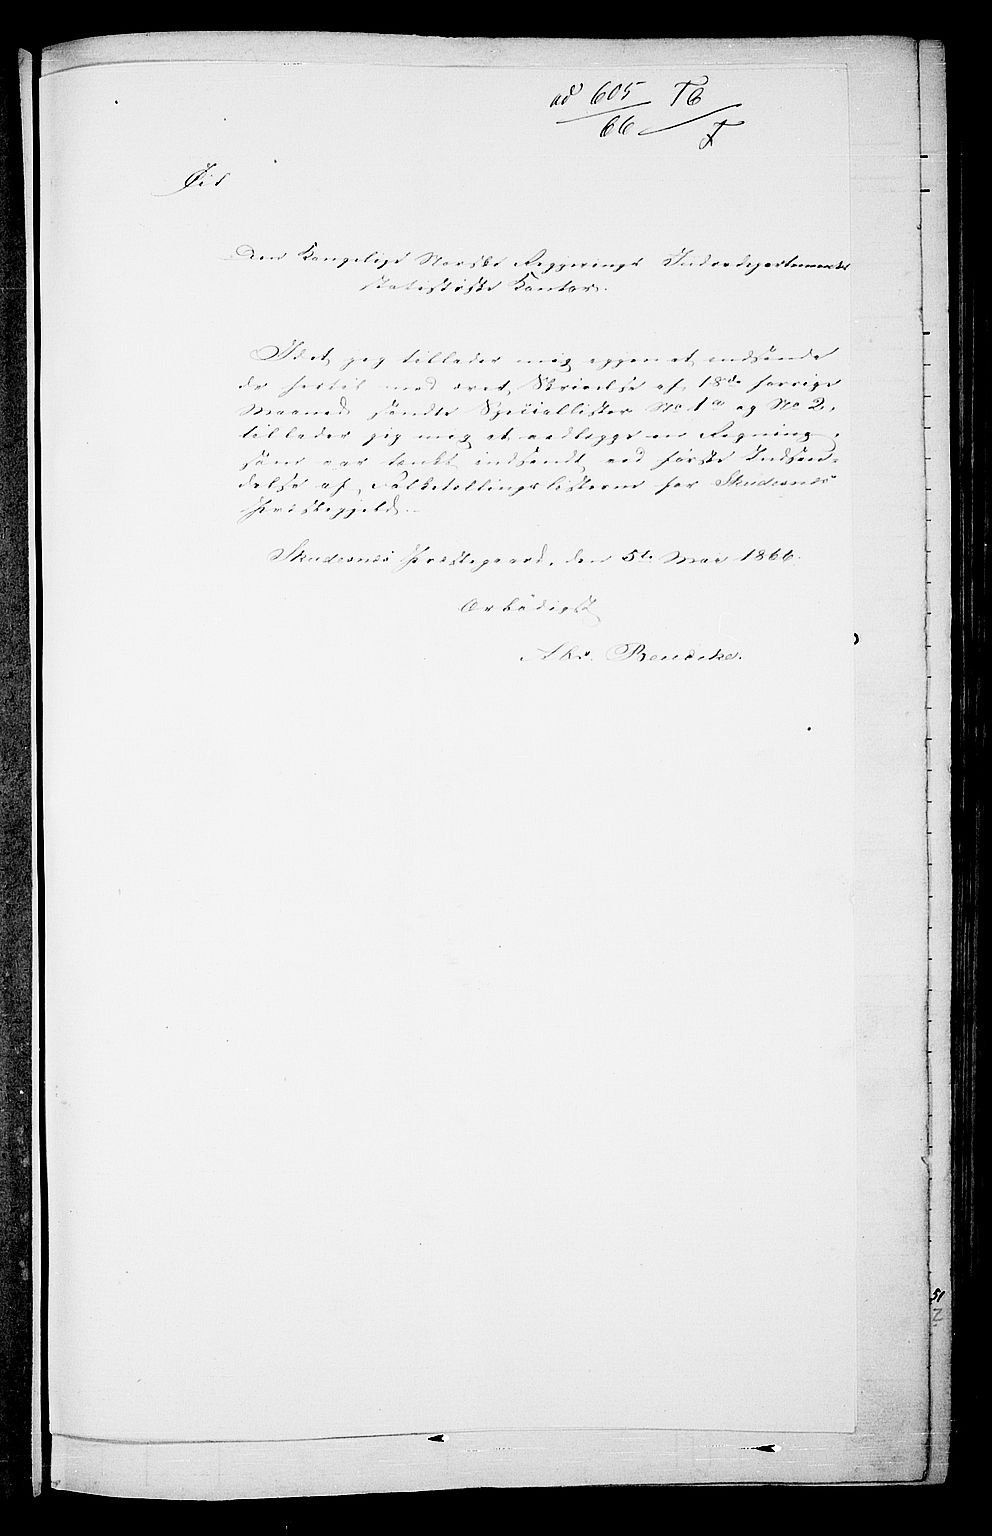 ad 605 T6
66 T
Til
Den Kongelige Norske Regjerings Indredepartements
statistiske Kontor.
Idet jeg tillader mig igjen at indsende
de hertil med æret Skrivelse af 18de forrige
Maaned sendte Speciallister No 1 a og No 2,
tillader jeg mig at vedlægge en Regning,
som var tænkt indsendt ved første Indsen-
delse af Folketællingslisterne for Skudesnes
Præstegjeld.
Skudesnes Præstegaard, den 5te Mai 1866.
Ærbødigst
Bendeke.
51